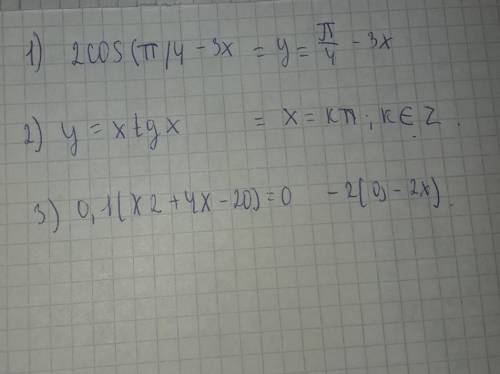 1) 2cos(π/4 - 3x = y = π/4 - 3x
2) y = xtgx = x = kπ; k∈Z.
3) 0,1(x2+4x-20)=0 -2(0,-2x).